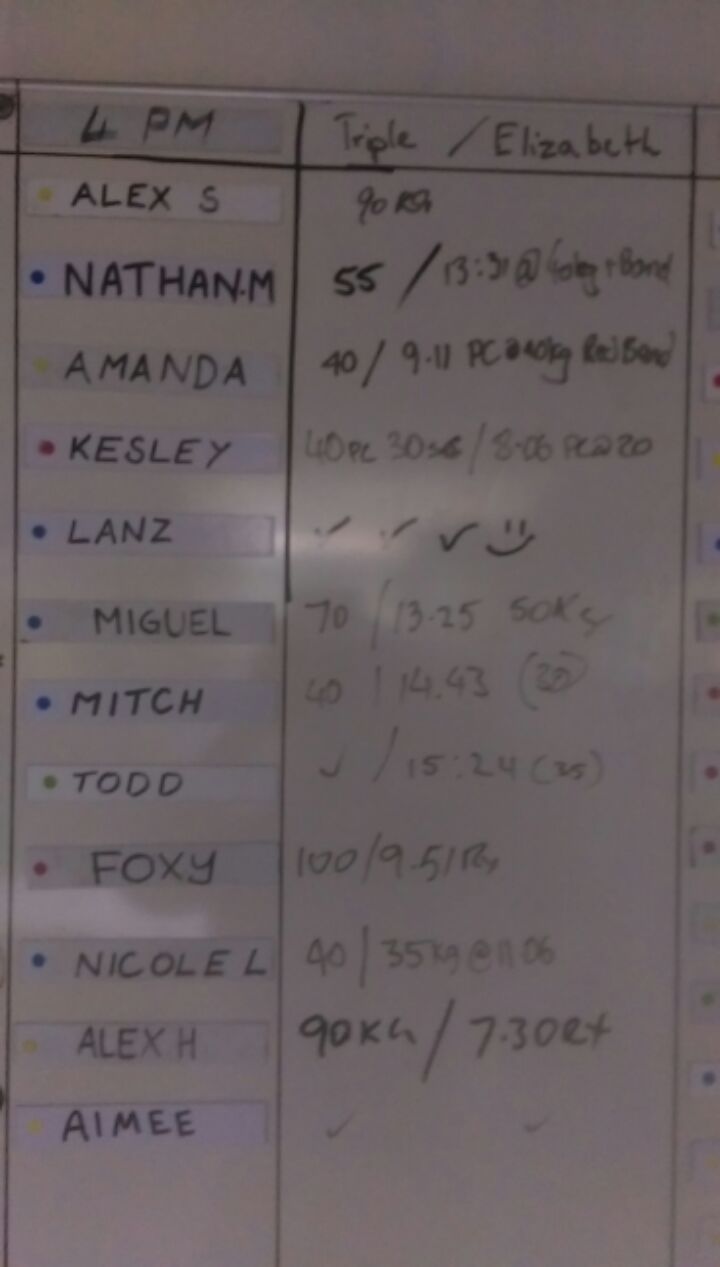 4 PM Triple / Elizabeth
ALEX S 90KG
NATHAN.M 55 / 13:31 @ 40kg + Band
AMANDA 40 / 9.11 PC @ 40kg Red Band
KESLEY 40PC 30 / 8.06 PC@20
LANZ ✓ ✓ ✓
MIGUEL 70 / 13.25 50Kg
MITCH 40 / 14.43 (30)
TODD ✓ / 15:24 (35)
FOXY 100 / 9.51 Rx
NICOLE L 40 / 35kg @ 11.06
ALEX H 90KG / 7.30 RX
AIMEE ✓ ✓